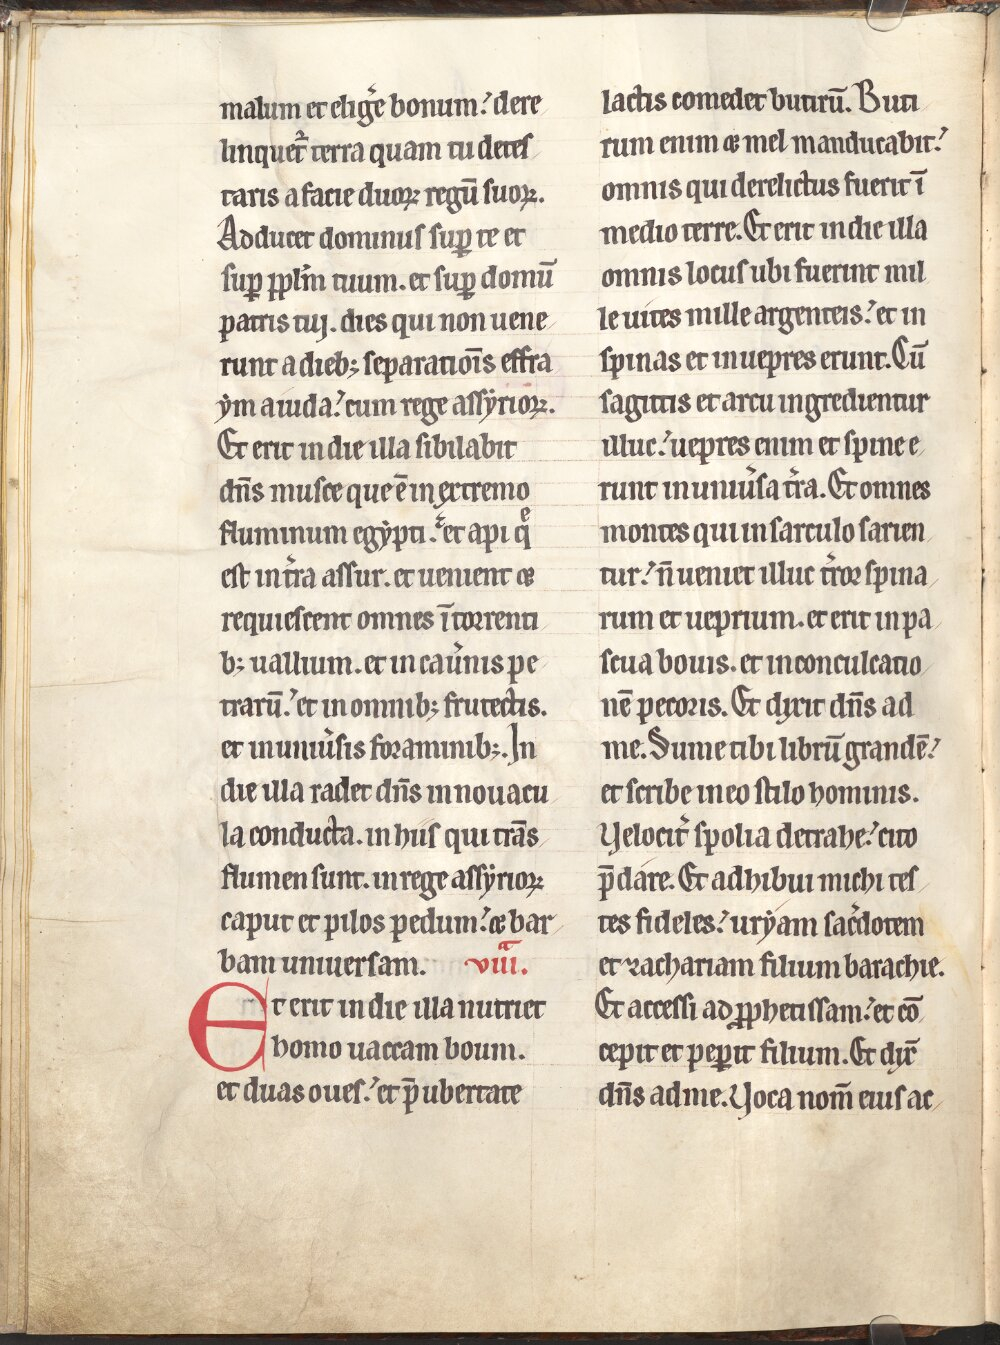 malum et elig̾e bonum? dere
linquet̾ terra quam tu detes
taris a facie duoꝝ regū suoꝝ.
Adducet dominus suꝑ te et
suꝑ ppl̾m tuum. et suꝑ domū
patris tuj. dies qui non uene
runt a dieb; separatiōīs effra
ẏm a iuda? cum rege assẏrioꝝ.
Et erit in die illa sibilabit
dn̄s musce que ē in extremo
fluminum egẏpti.? et api qͤ
est in t̾ra assur. et uenient &
requiescent omnes ī torrenti
b; uallium. et in cau̾nis pe
trarū? et in omnib; frutectis.
et in uniu̾sis foraminib;. In
die illa radet dn̄s in nouacu
la conducta. in hiis qui trās
flumen sunt. in rege assẏrioꝝ
caput et pilos pedum? & bar
bam uniuersam. viii.
Et erit in die illa nutriet
homo uaccam boum.
et duas oues? et p̄ ubertate
lactis comedet butirū. Buti
rum enim & mel manducabit?
omnis qui derelictus fuerit ī
medio terre. Et erit in die illa
omnis locus ubi fuerint mil
le uites mille argenteis? et in
spinas et in uepres erunt. Cū
sagittis et arcu ingredientur
illuc? uepres enim et spine e
runt in uniu̾sa t̾ra. Et omnes
montes qui in sarculo sarien
tur? n̄ ueniet illuc t̾ror spina
rum et ueprium. et erit in pa
scua bouis. et in conculcatio
nē pecoris. Et dixit dn̄s ad
me. Sume tibi librū grandē?
et scribe in eo stilo hominis.
Velocit̾ spolia detrahe? cito
p̄dare. Et adhibui michi tes
tes fideles? urẏam sac̾dotem
et zachariam filium barachie.
Et accessi ad ꝓphetissam? et cō
cepit et peꝑit filium. Et dix̾
dn̄s ad me. Voca nom̄ eius ac